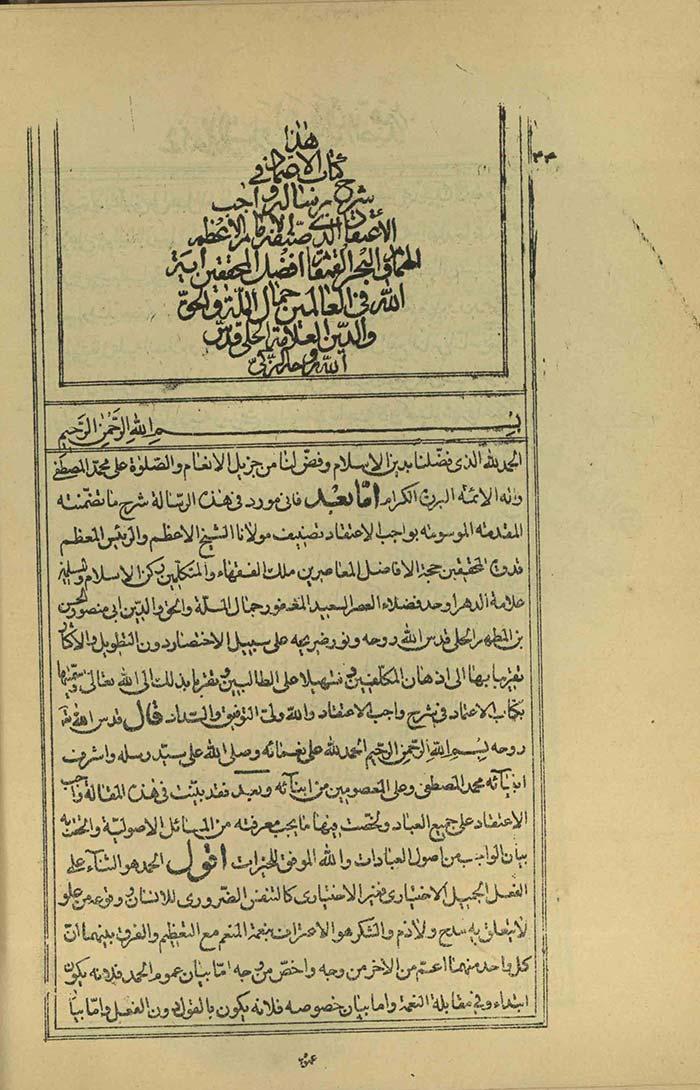 هذا
كتاب الاعتماد فى
شرح رسالة واجب
الاعتقاد الذى صنفه الامام الاعظم
الهمام البحر القمقام افضل المحققين اية
الله فى العالمين جمال الملة والحق
والدين العلامة الحلى قدس
الله روحه الزكى
٤٣
بسم الله الرحمن الرحيم
الحمد لله الذى فضلنا بدين الاسلام وفضل لنا من جزيل الانعام والصلوة على محمد المصطفى
واله الائمة البررة الكرام اما بعد فانى مورد فى هذه الرسالة شرح ما تضمنته
المقدمة الموسومة بواجب الاعتقاد تصنيف مولانا الشيخ الاعظم والرئيس المعظم
قدوة المحققين حجة الافاضل المعاصرين ملك الفقهاء والمتكلمين ركن الاسلام والمسلمين
علامة الدهر اوحد فضلاء العصر السعيد المغفور جمال الملة والحق والدين ابى منصور الحسن
بن المطهر الحلى قدس الله روحه ونور ضريحه على سبيل الاختصار دون التطويل والاكثار
تقريبا بها الى اذهان المكلفين وتسهيلا على الطالبين وتقربا بذلك الى الله تعالى وسميتها
بكتاب الاعتماد فى شرح واجب الاعتقاد والله ولى التوفيق والسداد قال قدس الله
روحه بسم الله الرحمن الرحيم الحمد لله على نعمائه وصلى الله على سيد رسله واشرف
انبيائه محمد المصطفى وعلى المعصومين من ابنائه وبعد فقد بينت فى هذه المقالة واجب
الاعتقاد على جميع العباد ولخصت فيها ما يجب معرفته من المسائل الاصولية والحقت به
بيان الواجب من اصول العبادات والله الموفق للخيرات اقول الحمد هو الثناء على
الفعل الجميل الاختيارى فغير الاختيارى كالتنفس الضرورى للانسان ووقوعه من علو
لا يتعلق به مدح ولا ذم والشكر هو الاعتراف بنعمة المنعم مع التعظيم والفرق بينهما ان
كل واحد منهما اعم من الاخر من وجه واخص من وجه اما بيان عموم الحمد فلانه يكون
ابتداء وفى مقابلة النعمة واما بيان خصوصه فلانه يكون بالقول دون الفعل واما بيان
عموم